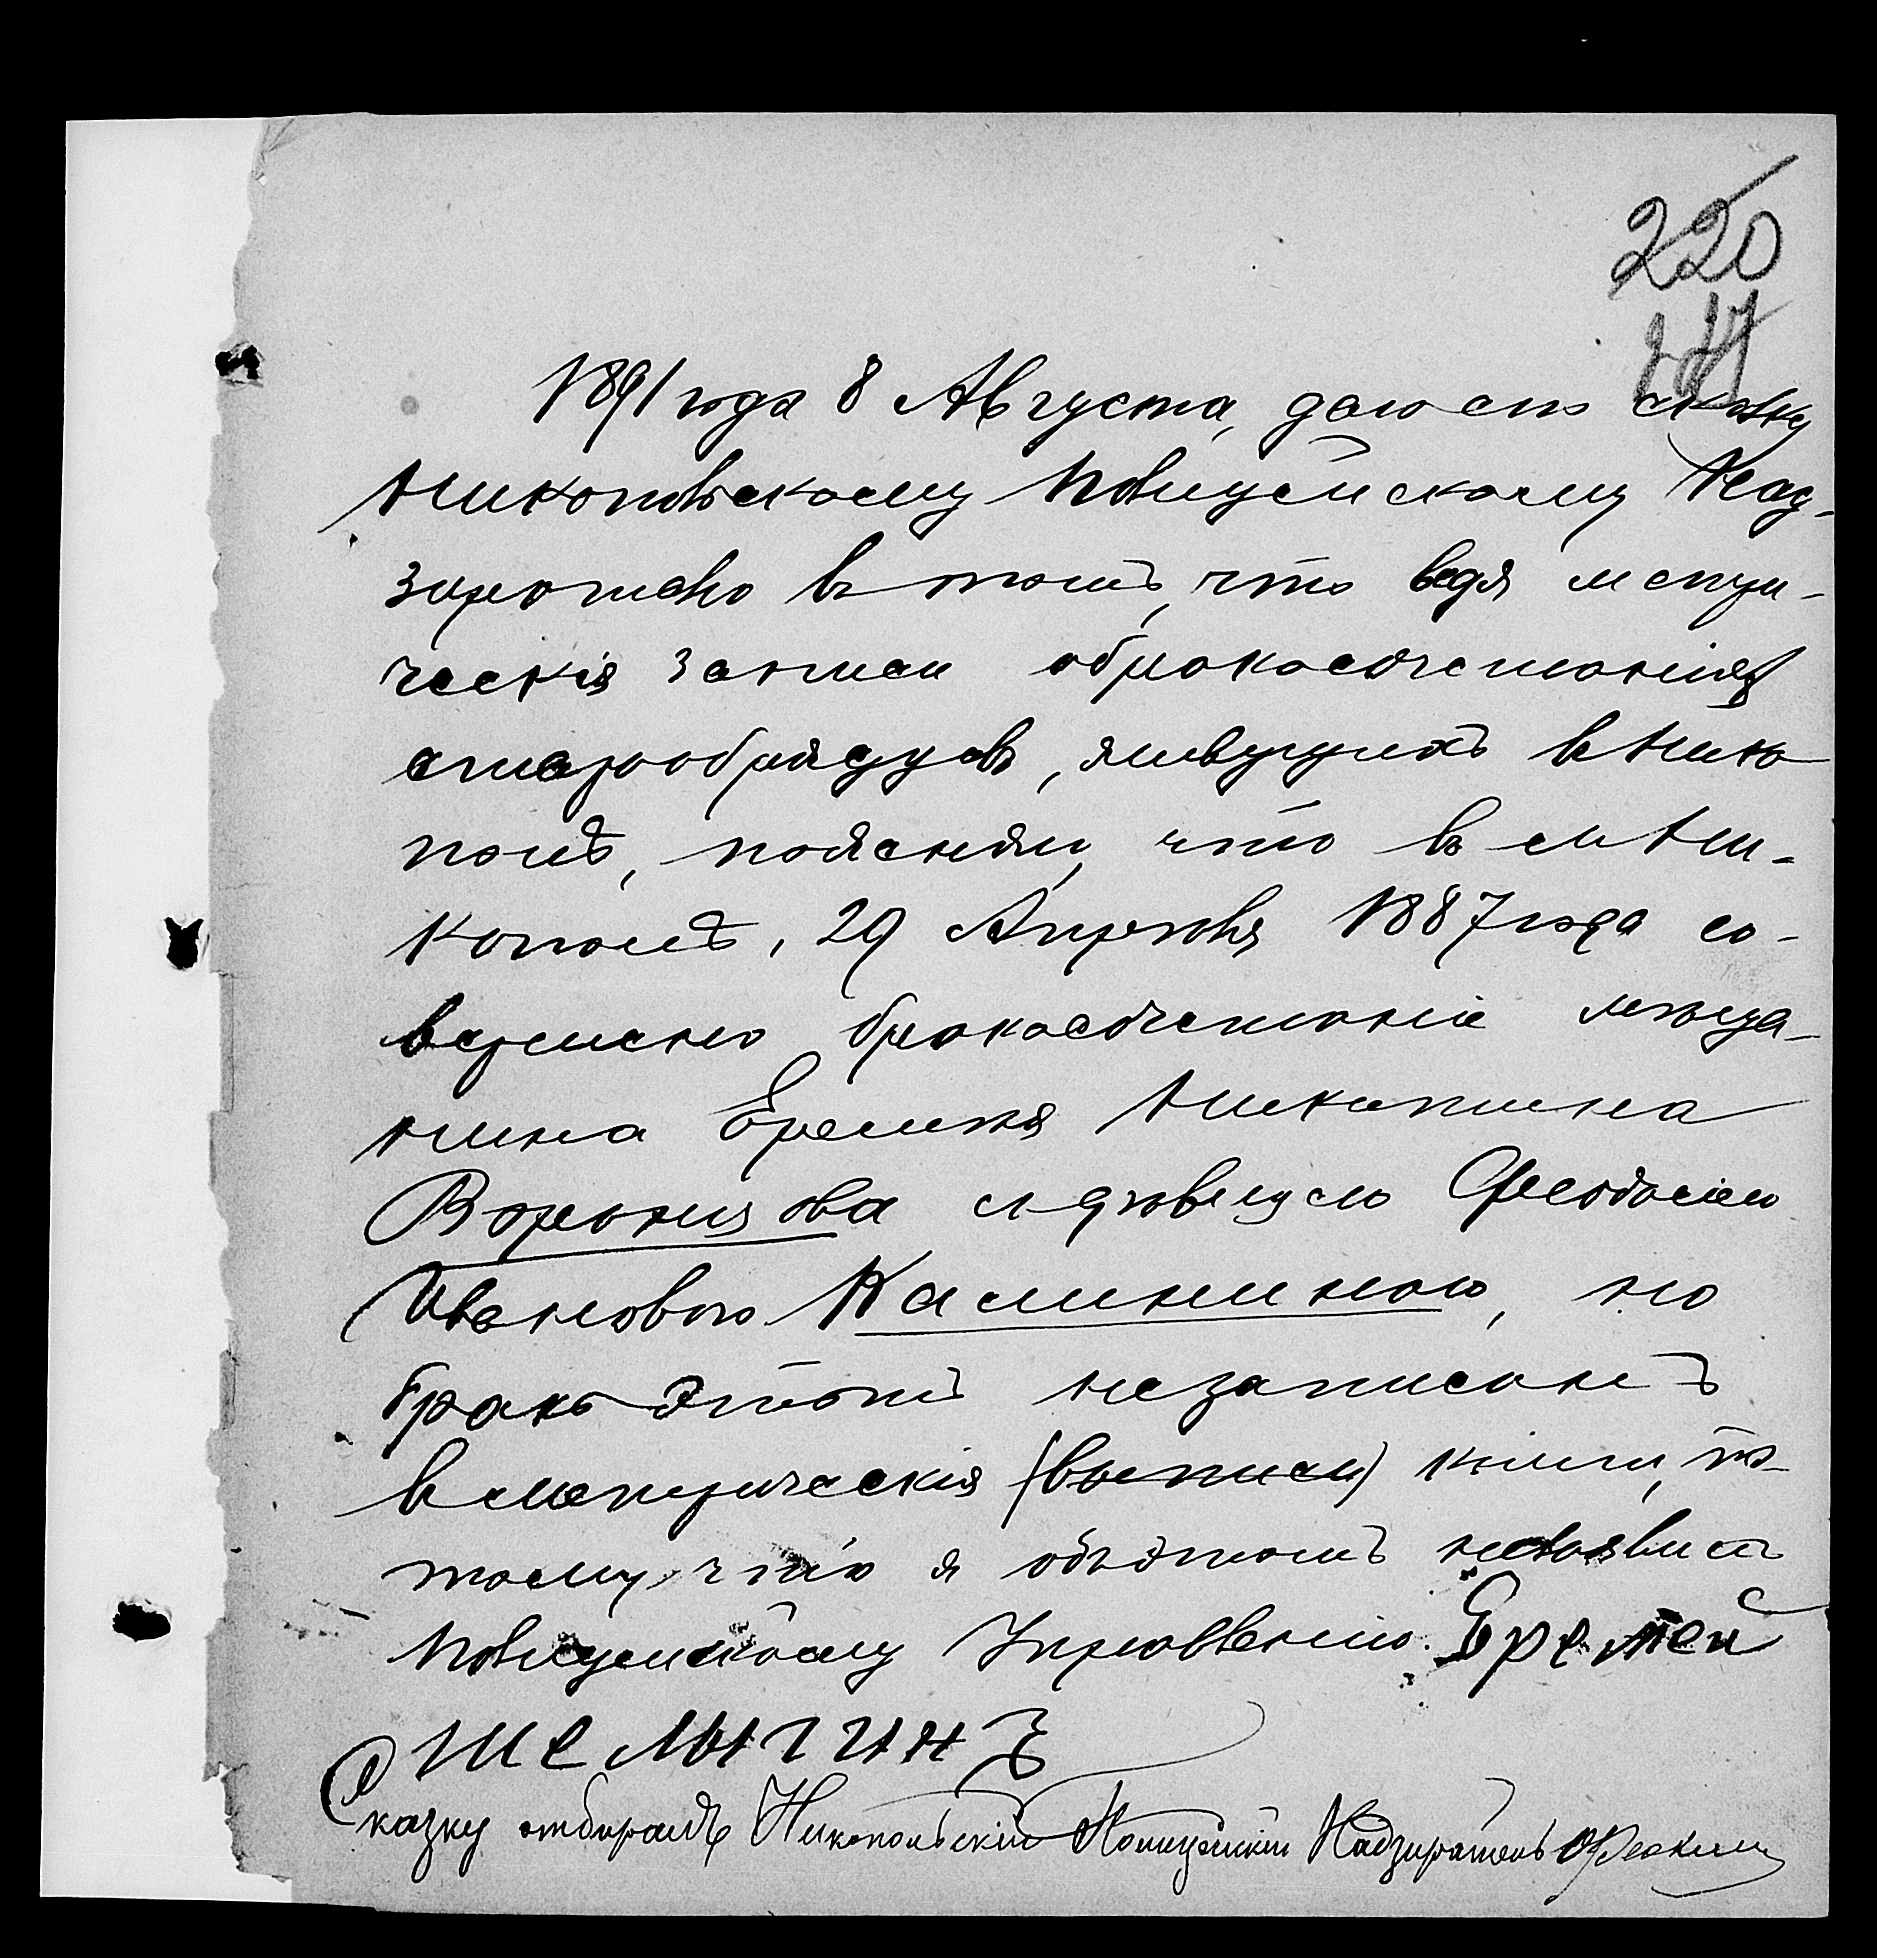 220
1891 года 8 Августа, даю сию сказку
Никопольскому Полицейскому Над-
зирателю въ томъ, что ведя метри-
ческія записи обракосочетаніях
старообрядцевъ, живущихъ в Нико
полѣ, поясняю, что въ м Ни-
кополѣ, 29 Апреля 1887 года со-
вершено бракосочетаніе мѣща-
нина Еремея Никитина
Воронцова съ дѣвицею Феодосіею
Ивановою Калининою, но
бракъ этотъ незаписанъ
в метрическія (выписи) книги, по-
тому что я объэтомъ незаявилъ
Полицейскому Управленію. Еремей
Шелыгинъ
Сказку отбиралъ Никопольскій Полицейскій Надзиратель